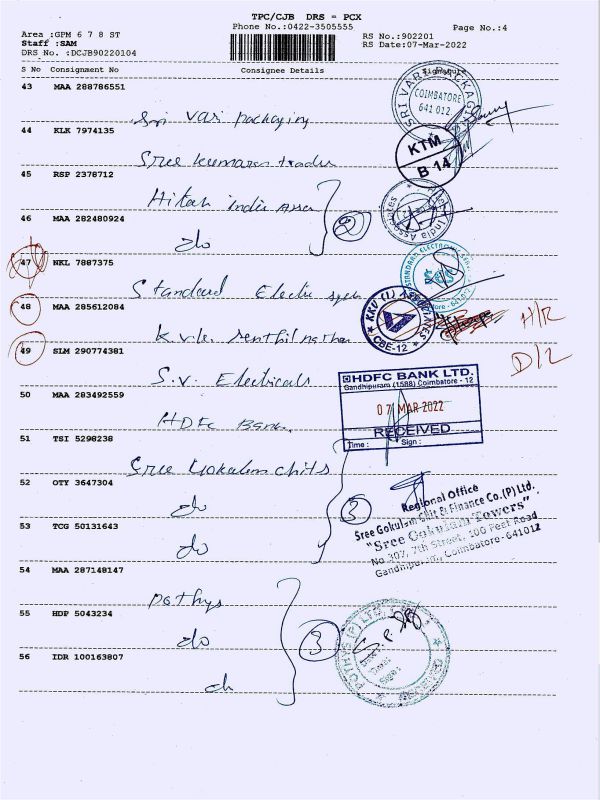 TPC/CJB DRS = PCX
Phone No.:0422-3505555
Page No.:4
Area :GPM 6 7 8 ST
Staff :SAM
DRS No. :DCJB90220104
RS No.:902201
RS Date:07-Mar-2022
S No Consignment No Consignee Details Signature
43 MAA 288786551
Sri Vari packaging
SRI VARI PACKAGING
COIMBATORE
641 012
44 KLK 7974135
Sree kumaran trades
KTM
B 14
45 RSP 2378712
Hitach India Asso
India Associates
46 MAA 282480924
do
2
47 NKL 7887375
Standard Electric system
STANDARD ELECTRIC
48 MAA 285612084
K.V.K. Senthilnathan
KKV (I) ASSOCIATES
CBE-12
H/R
49 SLM 290774381
S.V. Electricals
D/L
50 MAA 283492559
HDFC Bank.
HDFC BANK LTD.
Gandhipuram (1588) Coimbatore - 12
07 MAR 2022
RECEIVED
Time : Sign :
51 TSI 5298238
Sree Gokulam chits
52 OTY 3647304
do
3
Regional Office
Sree Gokulam Chit & Finance Co.(P) Ltd.
"Sree Gokulam Towers"
No 307, 7th Street, 100 Feet Road
Gandhipuram, Coimbatore - 641012
53 TCG 50131643
do
54 MAA 287148147
pothys
55 HDP 5043234
do
3
POTHYS (P) LTD
56 IDR 100163807
do